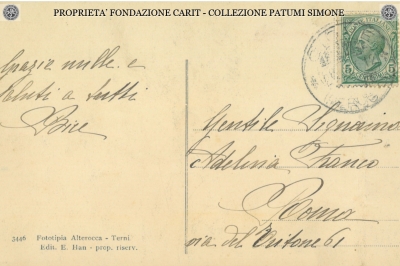 PROPRIETA' FONDAZIONE CARIT - COLLEZIONE PATUMI SIMONE
Grazie mille e
saluti a tutti
Bice
Gentile Signorina
Adelina Franco
Roma
via del Tritone 61
3446 Fototipia Alterocca - Terni
Edit. E. Hau - prop. riserv.